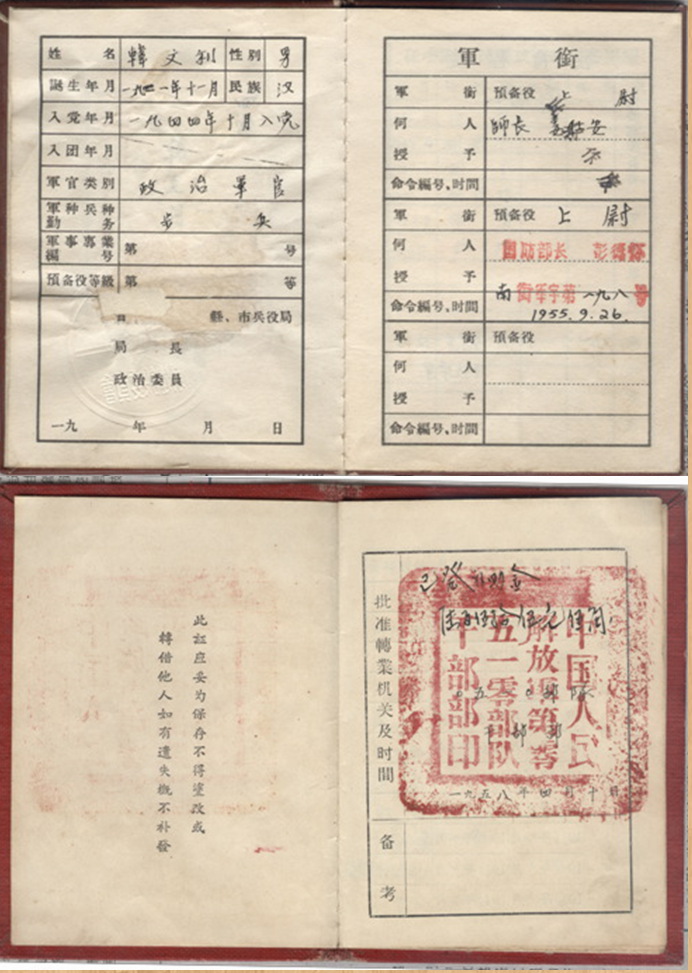 姓名 韓文 性别 男
誕生年月 一九二一年十一月 民族 汉
入党年月 一九四四年十月入党
入团年月
軍官类别 政治軍官
軍种兵种勤务 步兵
軍事專業編号 第 号
預备役等級 第 等
縣、市兵役局
局長
政治委員
一九 年 月 日
軍銜
軍銜 預备役 上尉
何人 師長
授予
命令編号、时間
軍銜 預备役 上尉
何人 國防部长 彭德怀
授予
命令編号、时間 南銜軍字第一九八号
1955.9.26.
軍銜 預备役
何人
授予
命令編号、时間
此証应妥为保存不得塗改或
轉借他人如有遺失概不补發
批准轉業机关及时間
中国人民
解放軍第零
五一零部队
干部部印
一九五八年四月十日
备考